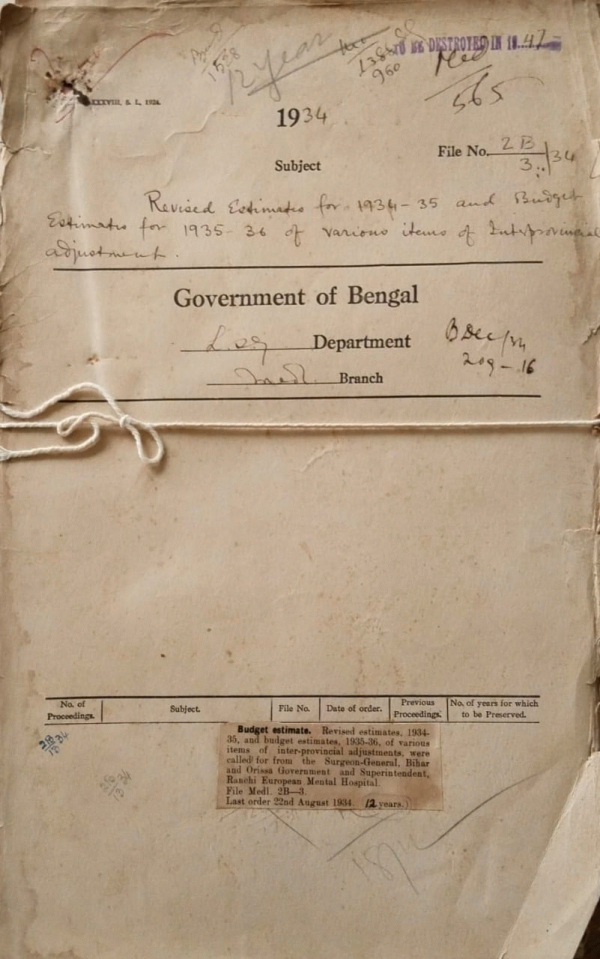 TO BE DESTROYED IN 19 47
12 year
565
XXXVIII, S. L., 1926.
1934
File No. 2B/3 /34
Subject
Revised Estimates for 1934-35 and Budget
Estimates for 1935-36 of various items of Interprovincial
adjustment.
Government of Bengal
Department
B Dec/34
Medl. Branch
209-16
No. of Proceedings. Subject. File No. Date of order. Previous Proceedings. No. of years for which to be Preserved.
Budget estimate. Revised estimates, 1934-
35, and budget estimates, 1935-36, of various
items of inter-provincial adjustments, were
called for from the Surgeon-General, Bihar
and Orissa Government and Superintendent,
Ranchi European Mental Hospital.
File Medl. 2B—3.
Last order 22nd August 1934. (12 years.)